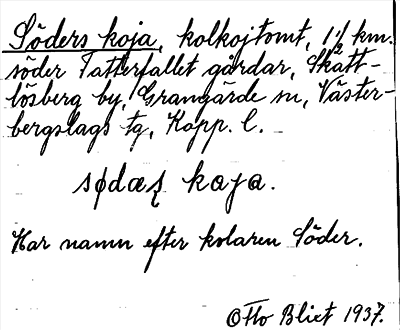 Söders koja, kolkojtomt, 1½ km.
söder Tattarfallet gårdar, Skatt-
lösberg by, Grangärde sn, Väster-
bergslags tg, Kopp. l.
sødæʂ kɑja.
Har namn efter kolaren Söder.
Otto Blixt 1937.